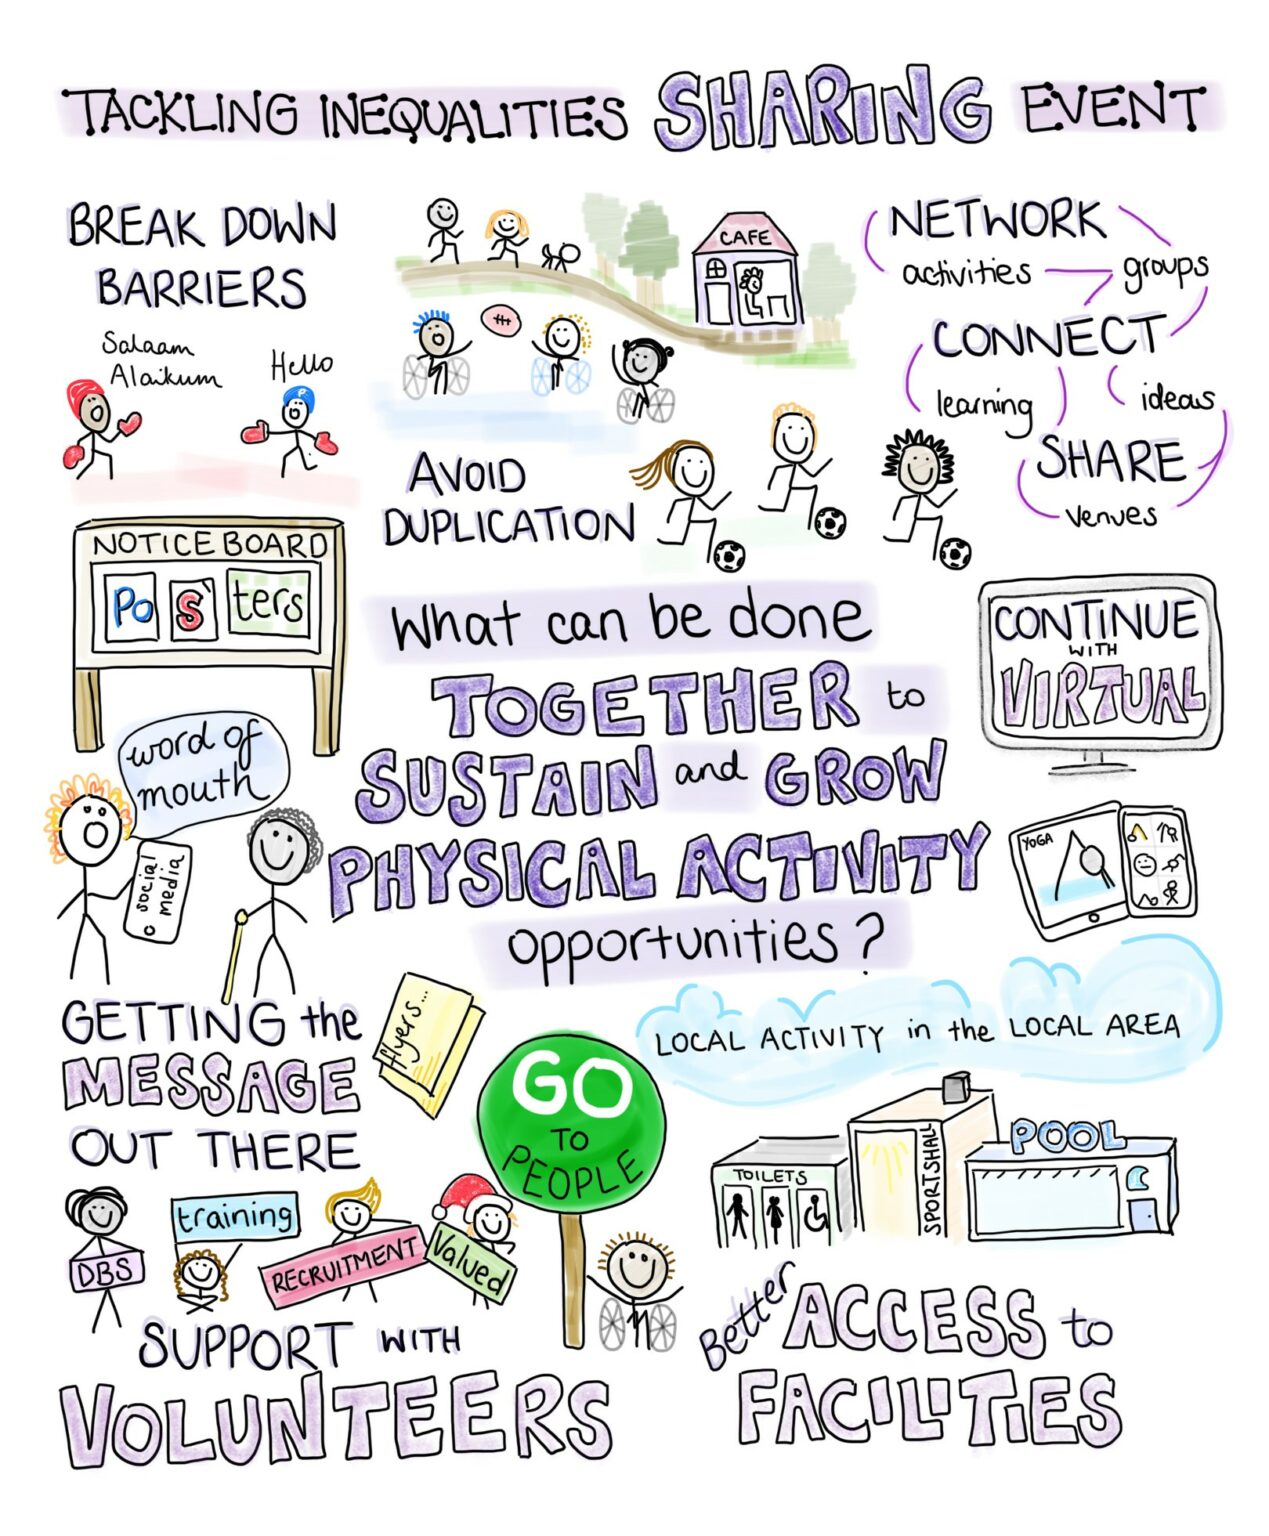 TACKLING INEQUALITIES SHARING EVENT
BREAK DOWN
BARRIERS
Salaam
Alaikum
Hello
CAFE
NETWORK
activities
groups
CONNECT
learning
ideas
SHARE
venues
AVOID
DUPLICATION
NOTICE BOARD
Posters
What can be done
TOGETHER to
SUSTAIN and GROW
PHYSICAL ACTIVITY
opportunities?
CONTINUE
WITH
VIRTUAL
YOGA
word of
mouth
social
media
GETTING the
MESSAGE
OUT THERE
flyers...
GO
TO
PEOPLE
LOCAL ACTIVITY in the LOCAL AREA
TOILETS
SPORTSHALL
POOL
DBS
training
RECRUITMENT
Valued
P
SUPPORT WITH
VOLUNTEERS
Better ACCESS to
FACILITIES